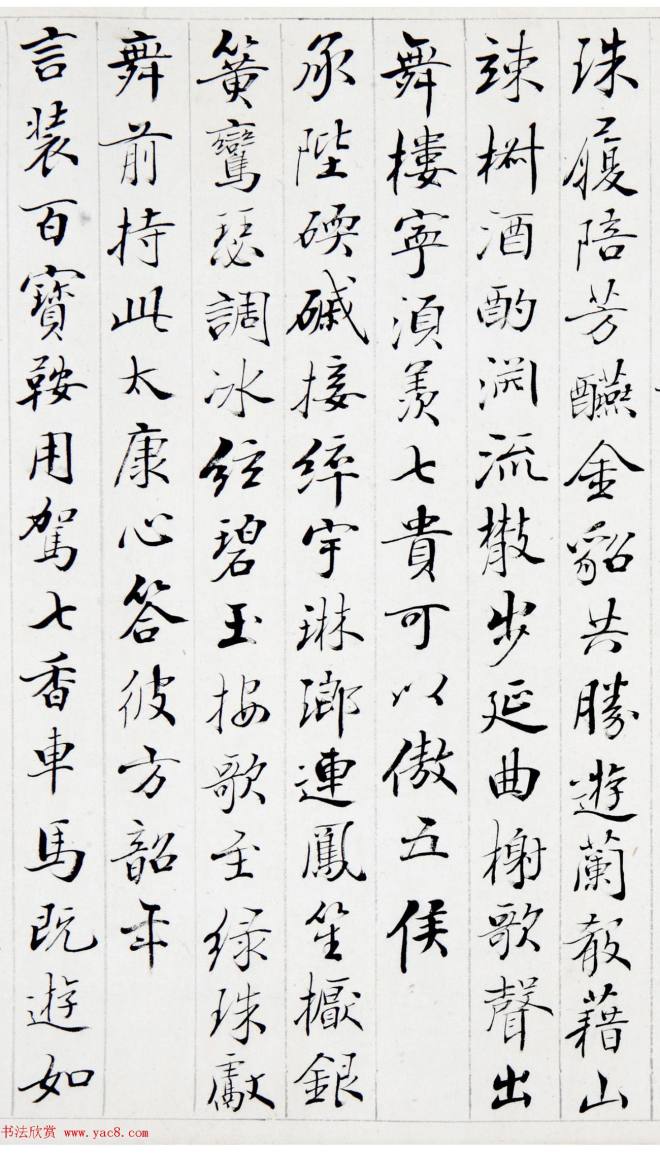 珠履陪芳醼金貂共勝遊蘭殽藉山
竦椒酒酌澗流撒步延曲榭歌聲出
舞樓寧須羨七貴可以傲五侯
承陛碝磩接綷宇琳瑯連鳳笙擫銀
簧鸞瑟調冰絃碧玉按歌至綠珠獻
舞前持此太康心答彼方韶年
言裝百寶鞍用駕七香車馬既遊如
书法欣赏 www.yac8.com